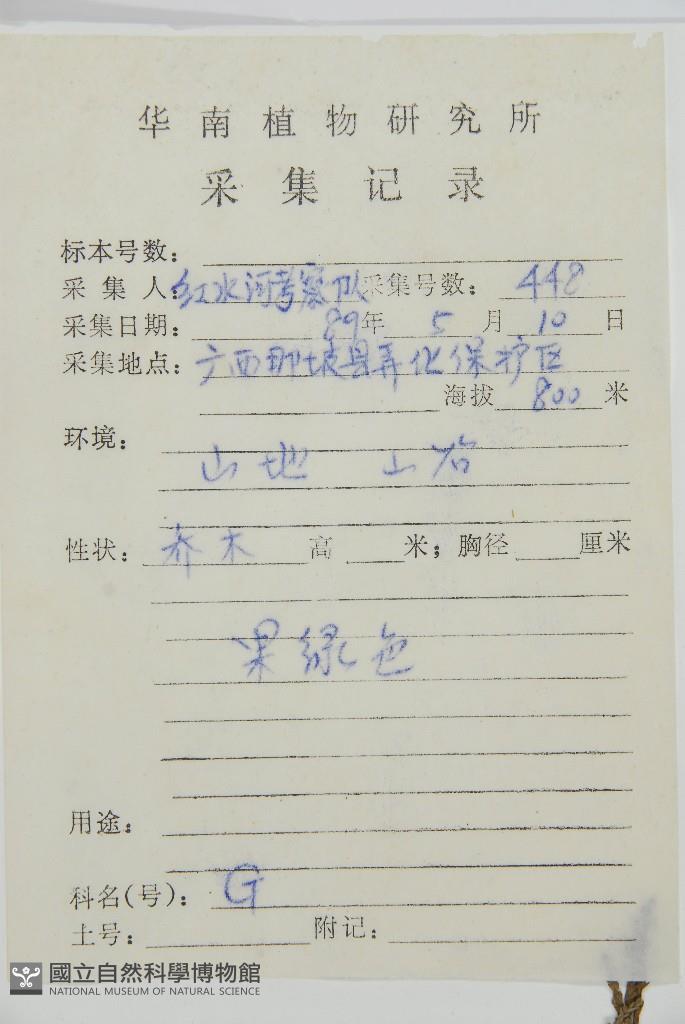 华南植物研究所
采集记录
标本号数：
采集人：红水河考察队 采集号数： 448
采集日期： 89年 5 月 10 日
采集地点：广西那坡县弄化保护区
海拔 800 米
环境：
山地 山谷
性状： 乔木 高 米；胸径 厘米
果绿色
用途：
科名(号)： G
土号： 附记：
國立自然科學博物館
NATIONAL MUSEUM OF NATURAL SCIENCE